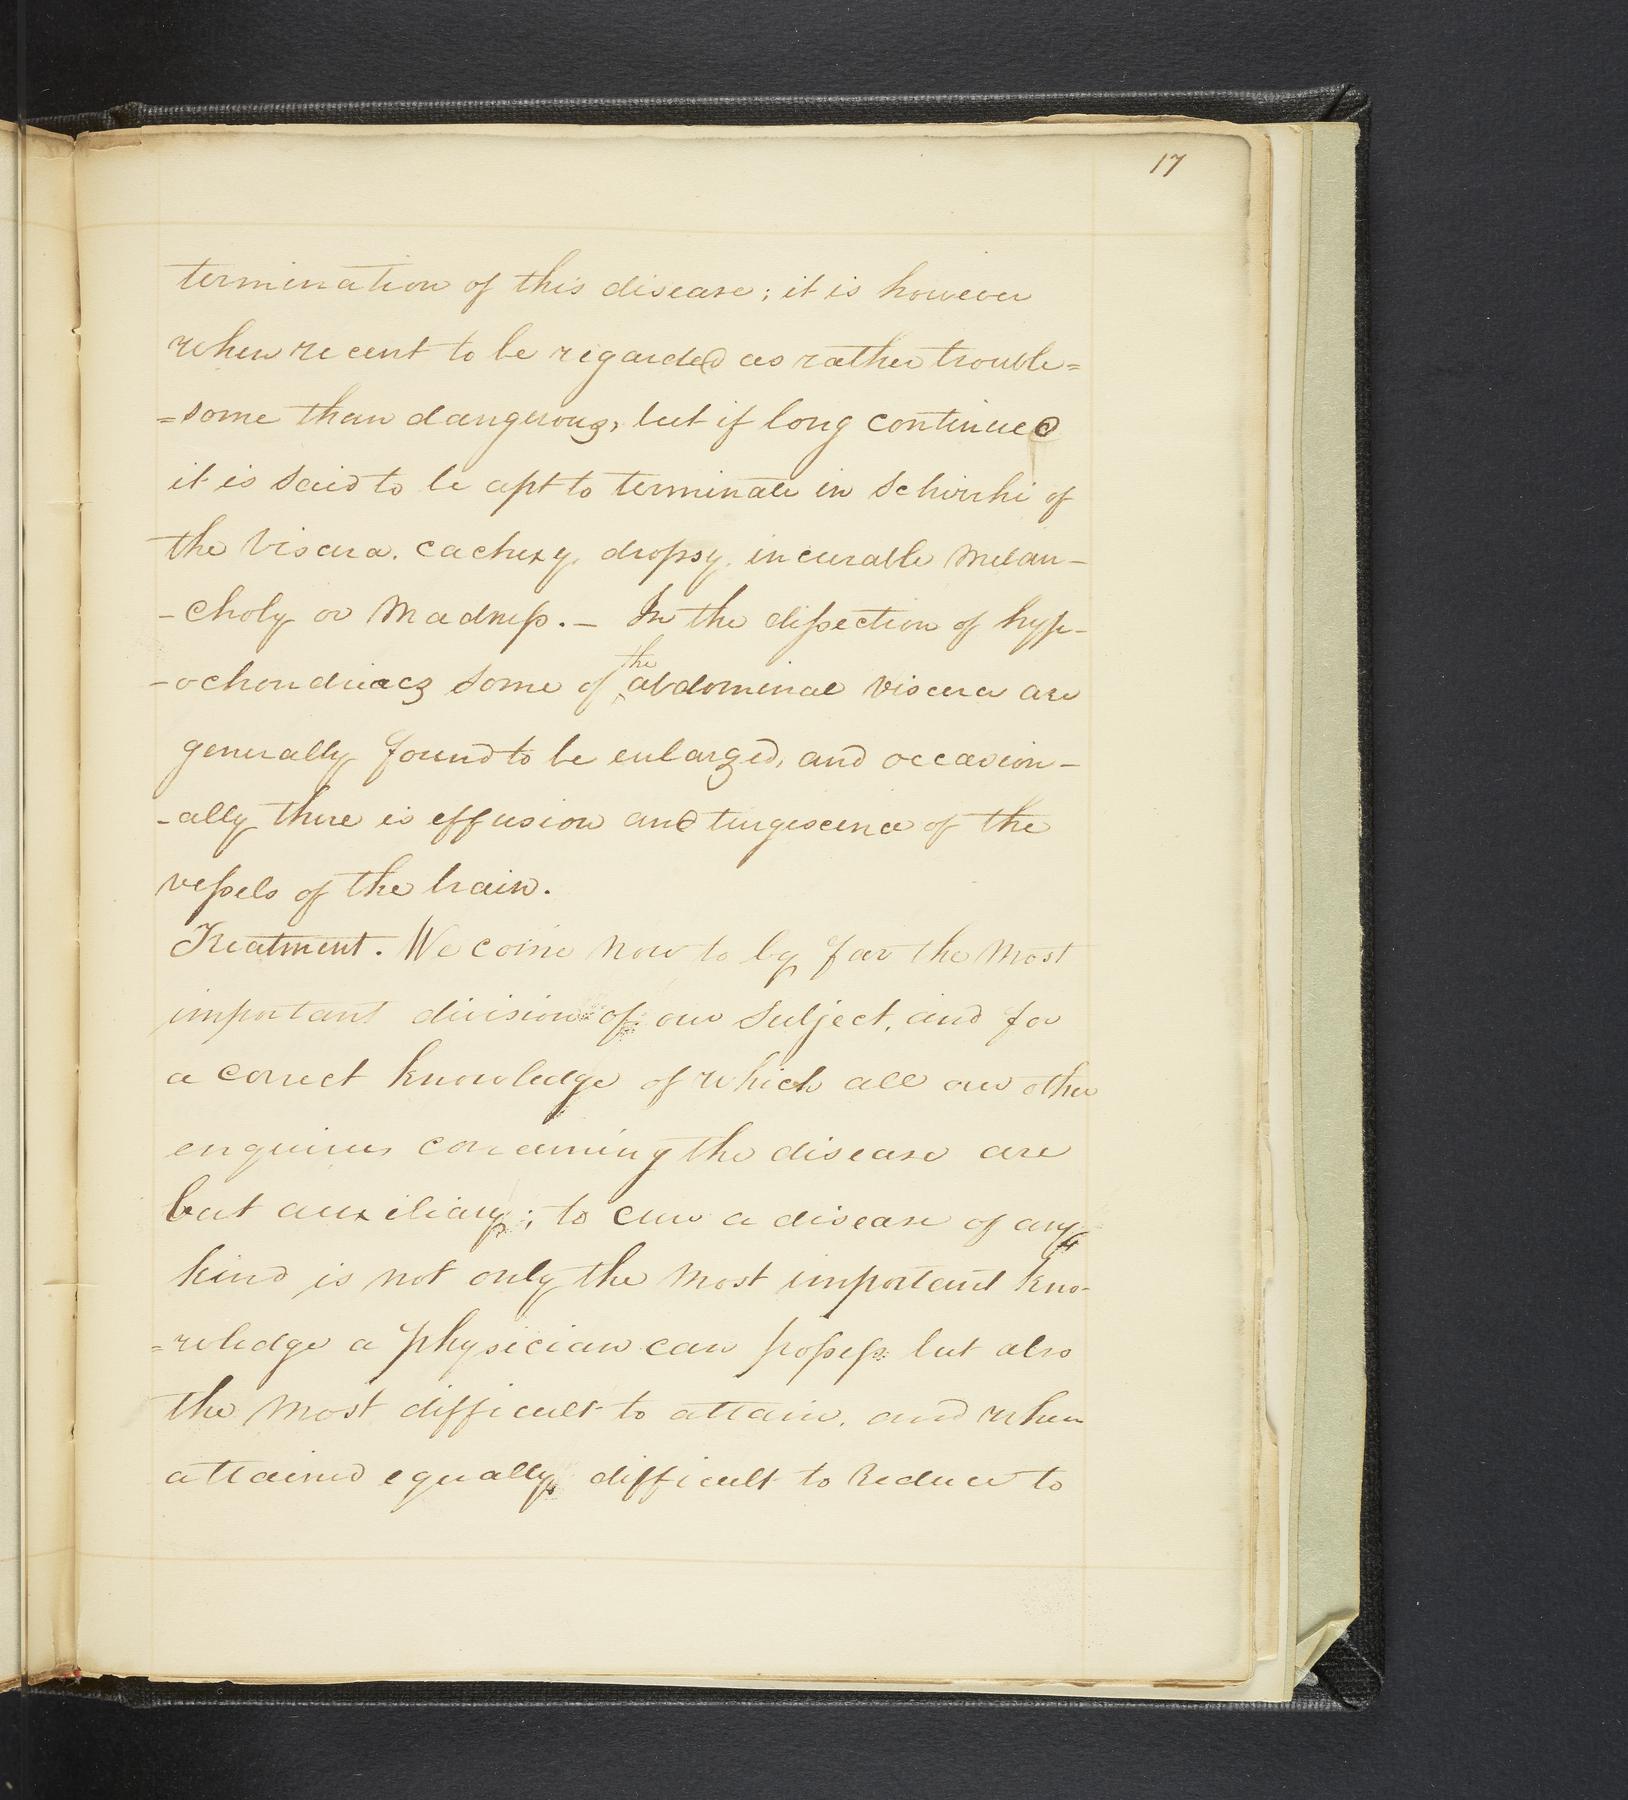 17
termination of this disease; it is however
when recent to be regarded as rather trouble=
=some than dangerous, but if long continued
it is said to be apt to terminate in Schirrhi of
the viscera. cachexy, dropsy, incurable melan-
-choly or Madness. — In the dissection of hyp-
-ochondriacs some of the abdominal viscera are
generally found to be enlarged, and occasion-
-ally there is effusion and turgescence of the
vessels of the brain.
Treatment. We come now to by far the most
important division of our subject, and for
a correct knowledge of which all our other
enquiries concerning the disease are
but auxiliary; to cure a disease of any
kind is not only the most important kno-
=wledge a physician can possess but also
the most difficult to attain, and when
attained equally difficult to reduce to